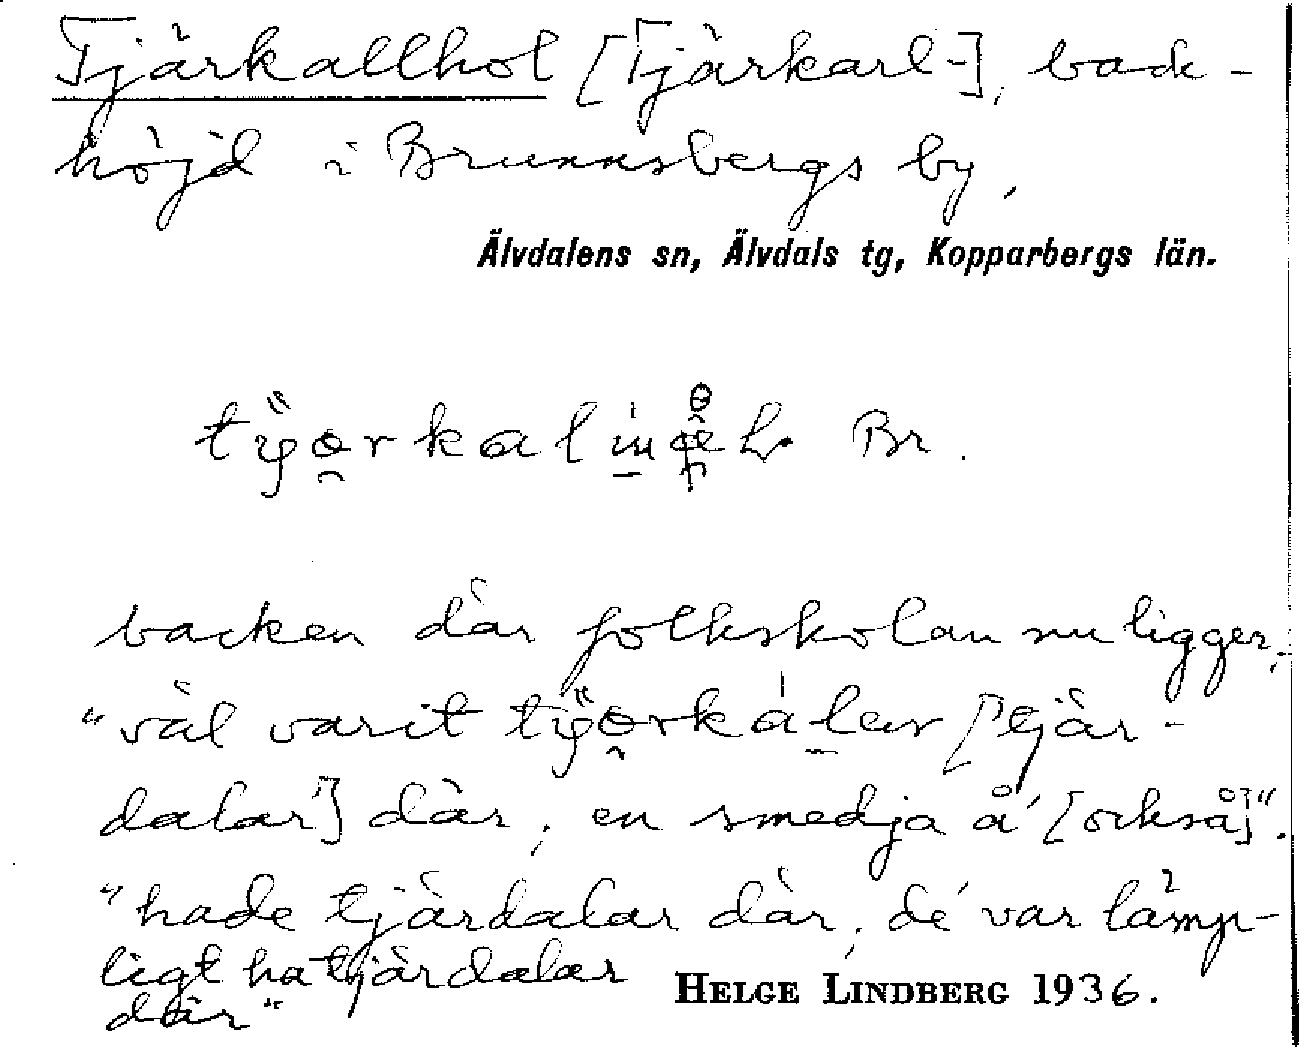 Tjärkallhol [Tjärkarl-], back-
höjd i Brunnsbergs by,
Älvdalens sn, Älvdals tg, Kopparbergs län.
Br.
backen där folkskolan nu ligger;
"väl varit [tjär-
dalar"] där, en smedja å' [också]".
"hade tjärdalar där, de' var lämp-
ligt ha tjärdalar
där"
HELGE LINDBERG 1936.